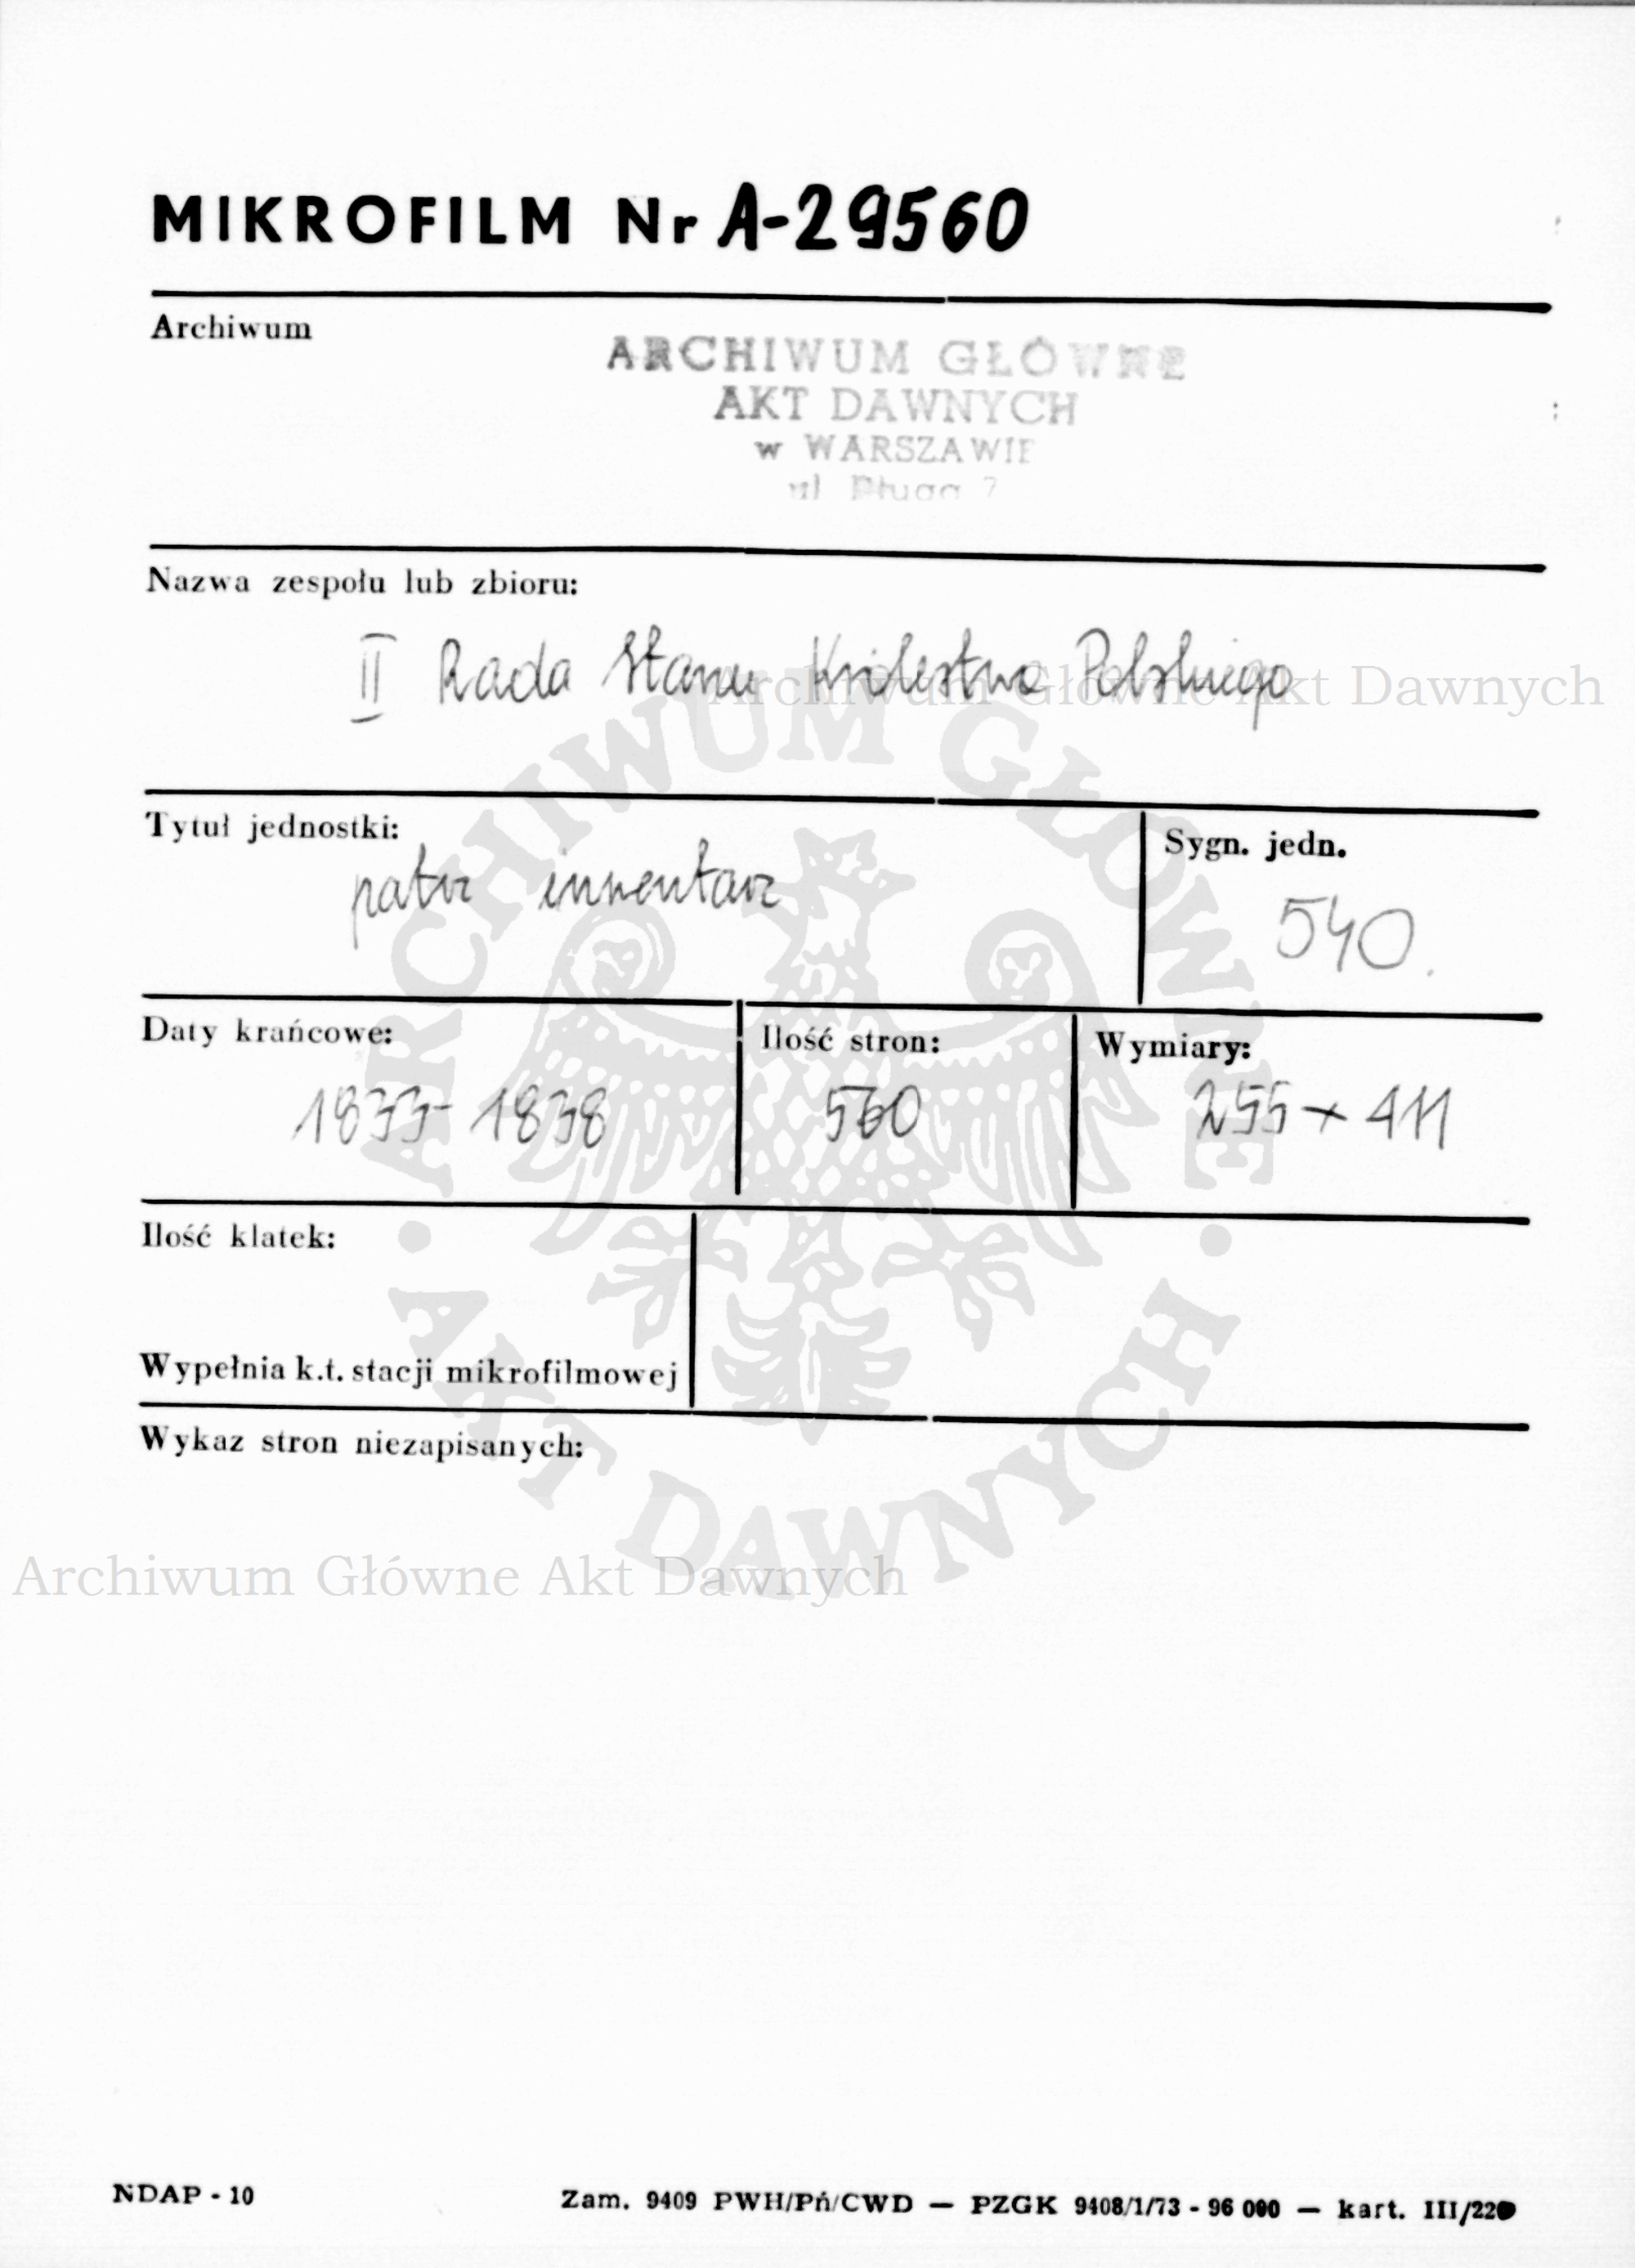 MIKROFILM Nr A-29560
Archiwum
ARCHIWUM GŁÓWNE
AKT DAWNYCH
w WARSZAWIE
ul Długa 7
Nazwa zespołu lub zbioru:
II Rada Stanu Królestwa Polskiego
Archiwum Główne Akt Dawnych
Tytuł jednostki:
patrz inwentarz
Sygn. jedn.
540.
Daty krańcowe:
1833-1838
Ilość stron:
560
Wymiary:
255 x 411
Ilość klatek:
Wypełnia k.t. stacji mikrofilmowej
Wykaz stron niezapisanych:
ARCHIWUM GŁÓWNE
AKT DAWNYCH
Archiwum Główne Akt Dawnych
NDAP - 10
Zam. 9409 PWH/Pń/CWD — PZGK 9408/1/73 - 96 000 — kart. III/220